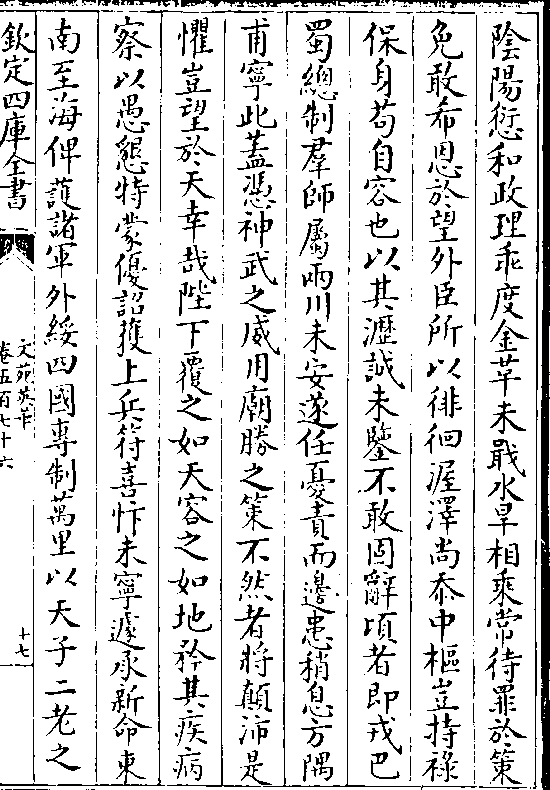 陰陽愆和政理乖度金革未戢水旱相乘常待罪於策
免敢希恩於望外臣所以徘徊渥澤尚忝中樞豈持祿
保身苟自容也以其瀝誠未鑒不敢固辭頃者即戎巴
蜀總制羣師屬兩川未安遂任憂責而邊患稍息方隅
甫寧此蓋憑神武之威用廟勝之策不然者將顛沛是
懼豈望於天幸哉陛下覆之如天容之如地矜其疾病
察以愚懇特蒙優詔獲上兵符喜忭未寧遽承新命東
南至海俾護諸軍外綏四國專制萬里以天子二老之
欽定四庫全書
文苑英華
卷五百七十六
十七